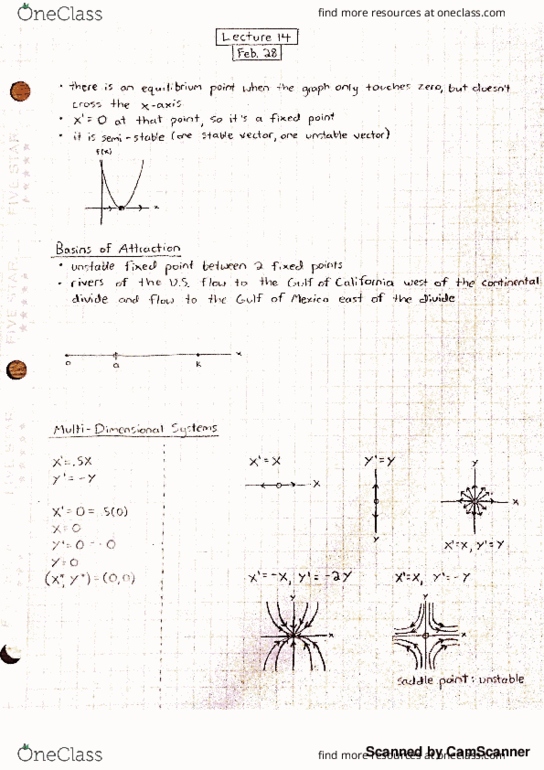 OneClass
find more resources at oneclass.com
Lecture 14
Feb. 28
• there is an equilibrium point when the graph only touches zero, but doesn't
cross the x-axis
• x' = 0 at that point, so it's a fixed point
• it is semi-stable (one stable vector, one unstable vector)
f(x)
x
FIVE STAR
Basins of Attraction
• unstable fixed point between 2 fixed points
• rivers of the U.S. flow to the Gulf of California west of the continental
divide and flow to the Gulf of Mexico east of the divide
FIVE STAR
x
0 a k
Multi-Dimensional Systems
X'=.5X
Y'=-Y
X'=0=.5(0)
X=0
Y'=0=-0
Y=0
(X*, Y*)=(0,0)
X'=X
X
Y'=Y
Y
Y
X
X'=X, Y'=Y
X'=-X, Y'=-2Y
Y
X
X'=X, Y'=-Y
Y
X
saddle point: unstable
OneClass
find more resources at oneclass.com
Scanned by CamScanner